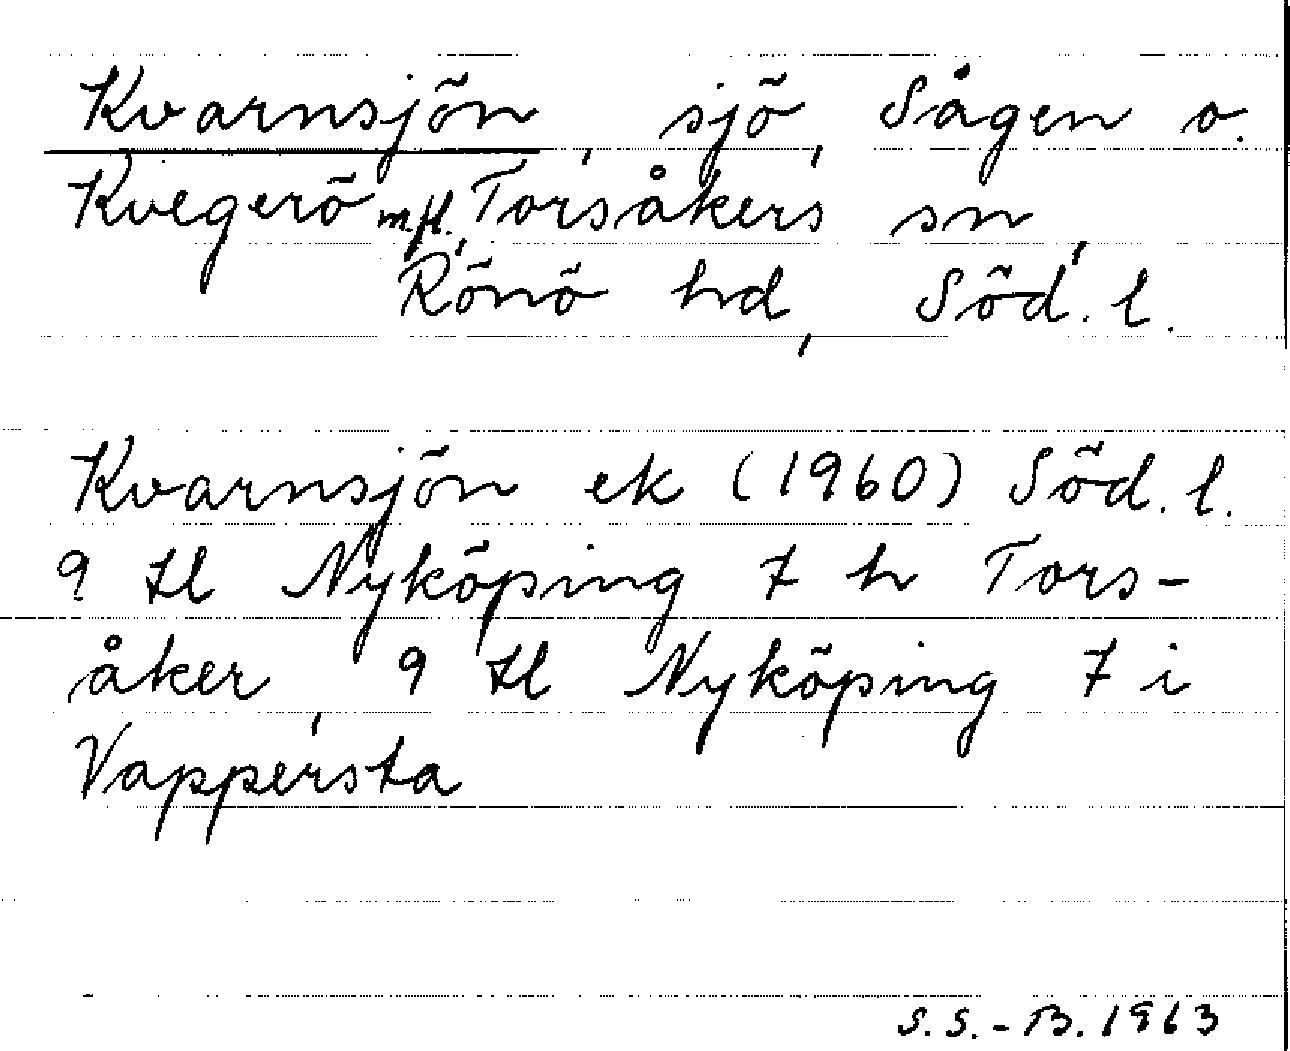 Kvarnsjön, sjö, Sågen o.
Kvegerö m.fl., Torsåkers sn,
Rönö hd, Söd. l.
Kvarnsjön ek (1960) Söd. l.
9 H Nyköping 7 h Tors-
åker, 9 H Nyköping 7 i
Vappersta
S.S.-B. 1963